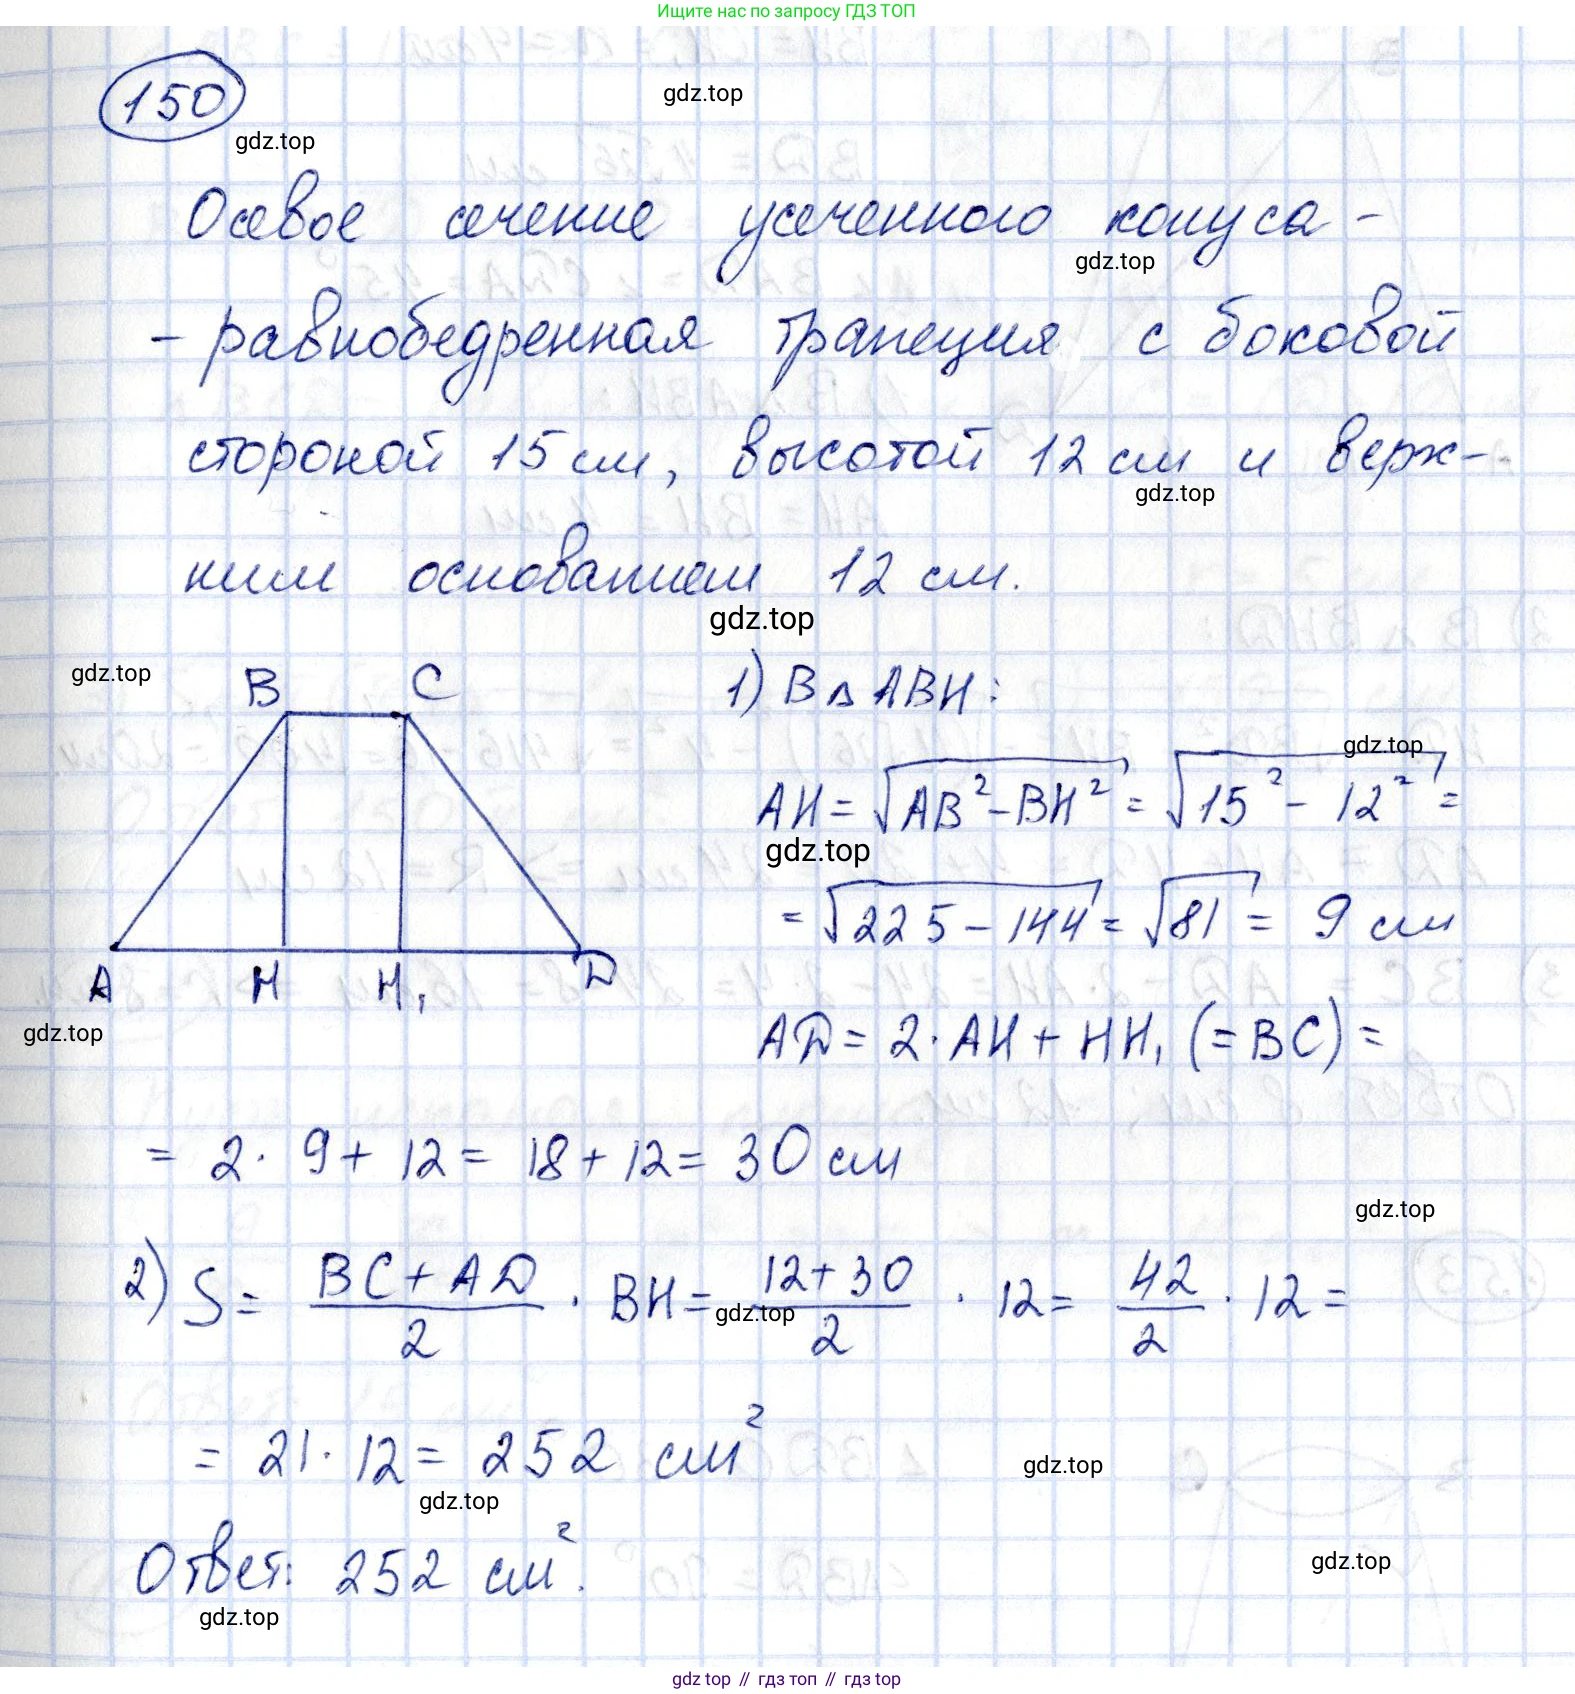 Ищите нас по запросу ГДЗ ТОП
150
gdz.top
gdz.top
Осевое сечение усеченного конуса -
gdz.top
- равнобедренная трапеция с боковой
стороной 15 см, высотой 12 см и верх-
gdz.top
ним основанием 12 см.
gdz.top
gdz.top
B C
1) В △ ABH:
gdz.top
AH = √(AB² - BH²) = √(15² - 12²) =
gdz.top
= √(225 - 144) = √81 = 9 см
A H H₁ D
gdz.top
AD = 2 · AH + HH₁ (= BC) =
= 2 · 9 + 12 = 18 + 12 = 30 см
gdz.top
2) S = (BC + AD)/2 · BH = (12 + 30)/2 · 12 = 42/2 · 12 =
gdz.top
= 21 · 12 = 252 см²
gdz.top
gdz.top
Ответ: 252 см².
gdz.top
gdz.top
gdz top // гдз топ // гдз top